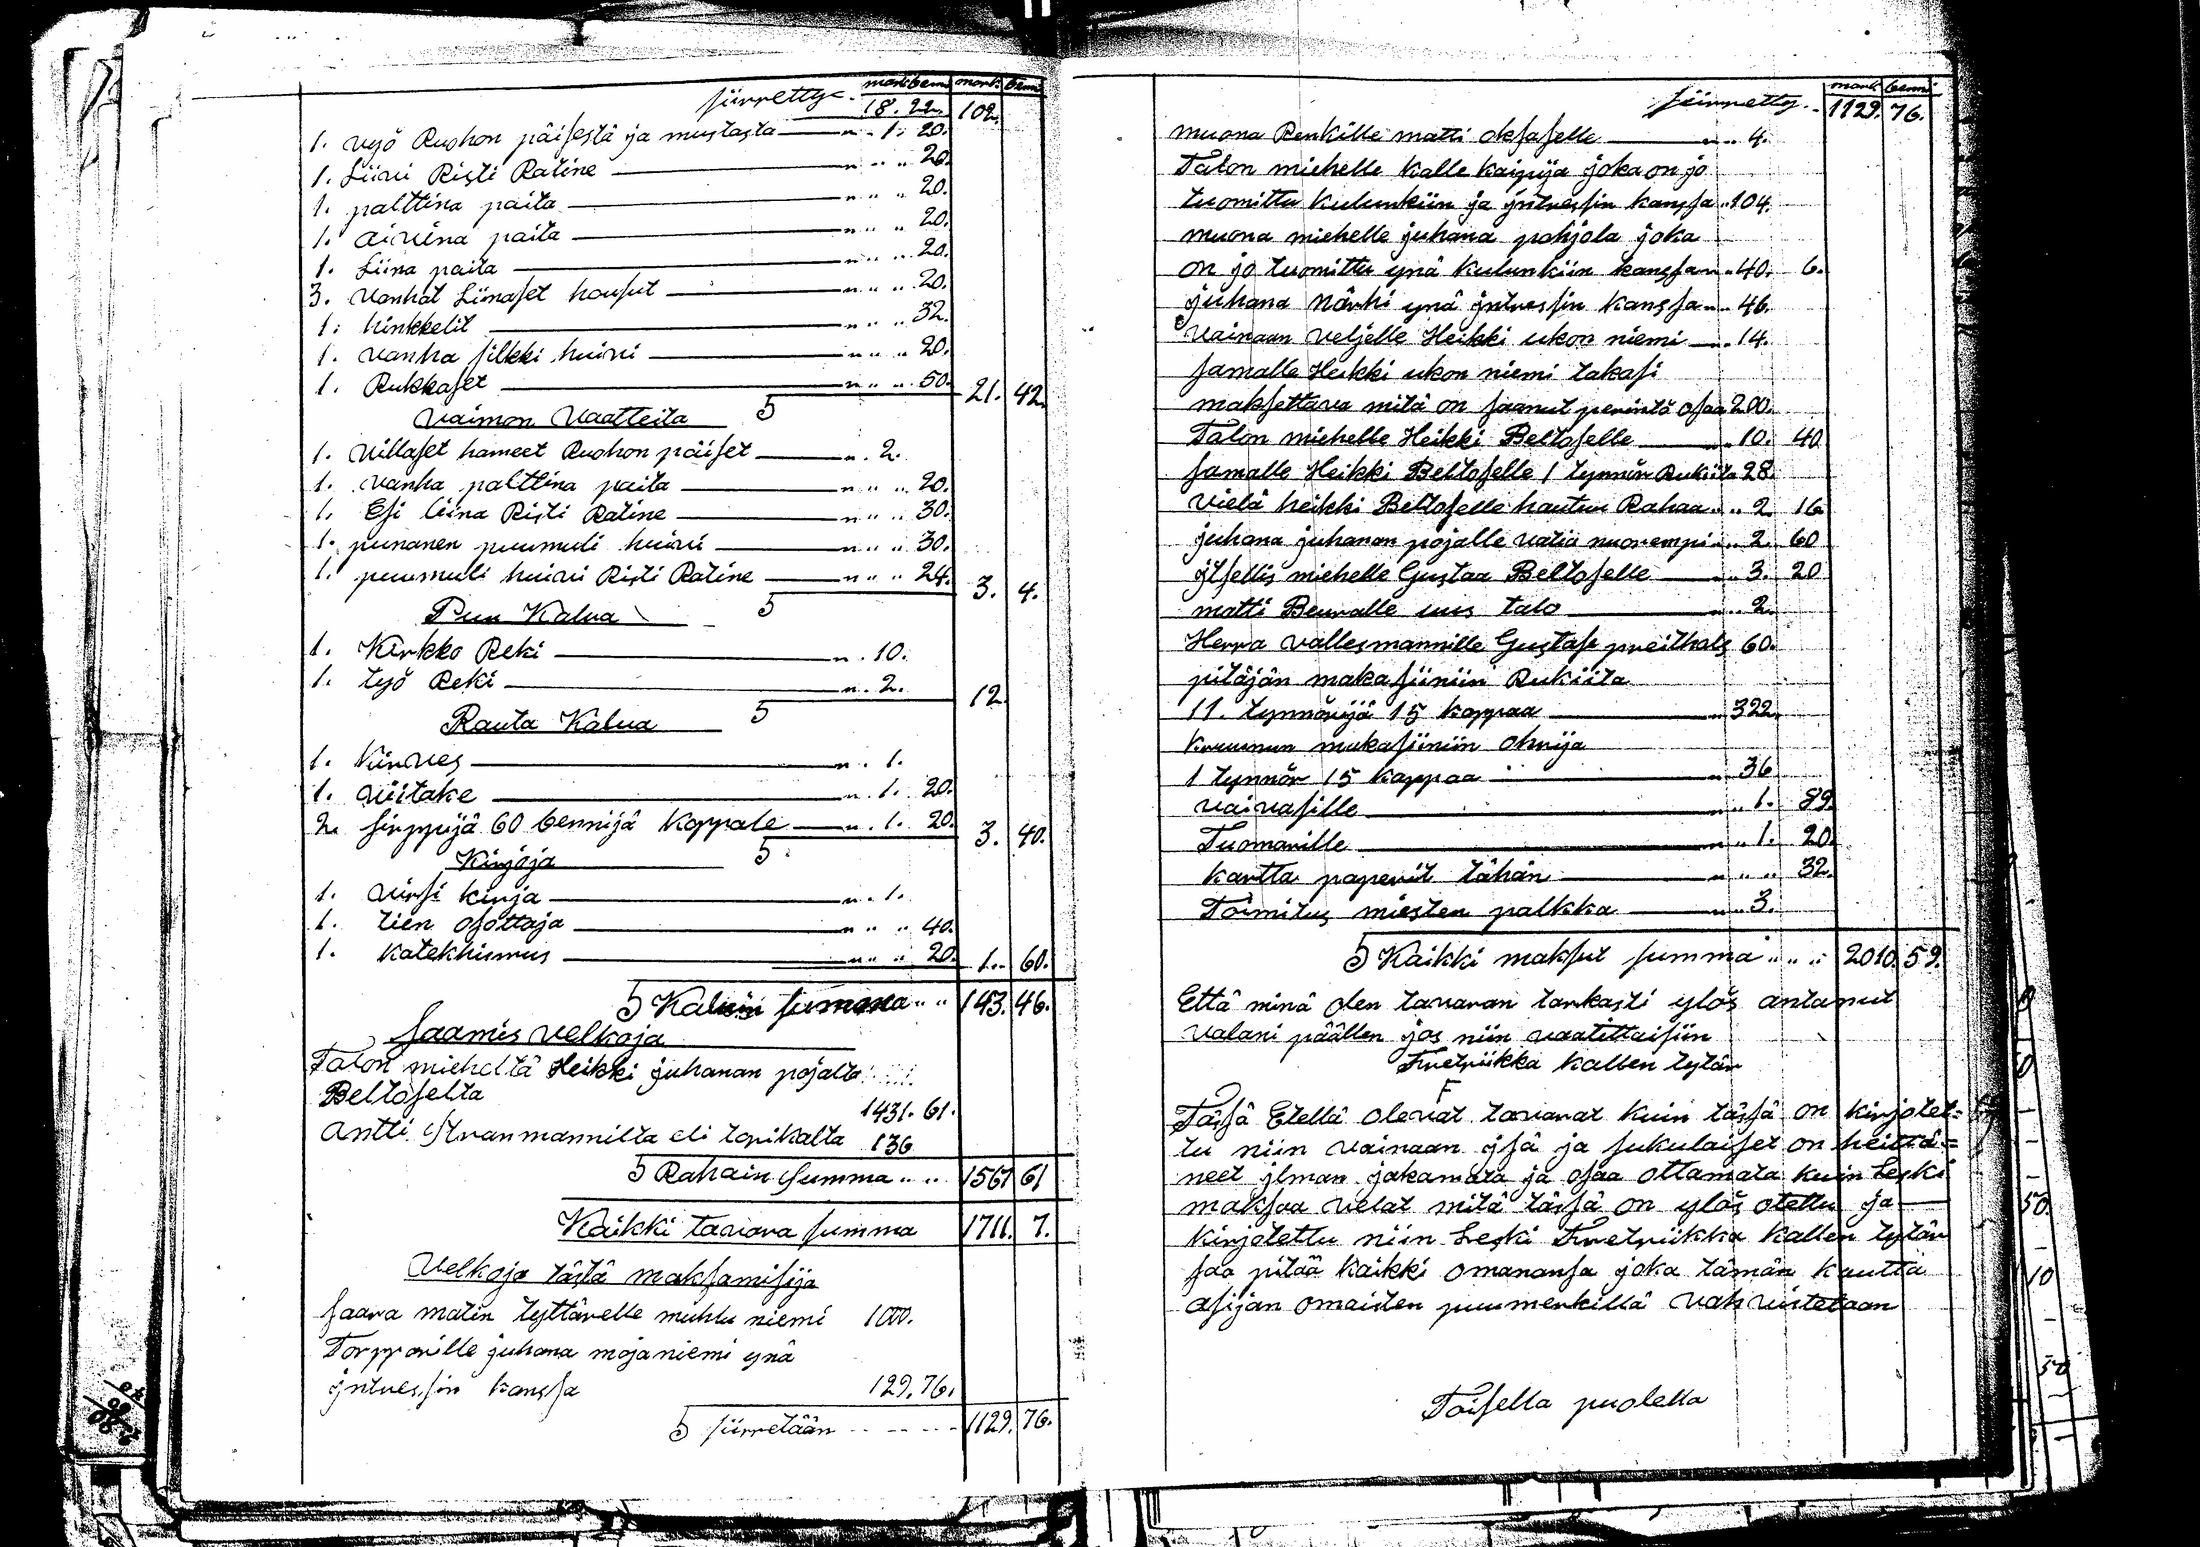 mark. penni mark. penni
siirretty 18. 22. 102.
1. vyö Ruohon päisestä ja mustasta " 1. 20.
1. Liivi Risti Ratine " " " 20.
1. palttina paita " " " 20.
1. aivina paita " " " 20.
1. Liina paita " " " 20.
3. vanhat Liinaset housut " " " 20.
1. hinkkelit " " " 32.
1. vanha silkki huivi " " " 20.
1. Rukkaset " " " 50. 21. 42.
Vaimon Vaatteita S
1. villaset hameet Ruohon päiset " 2.
1. vanha palttina paita " " " 20.
1. Esi liina Risti Ratine " " " 30.
1. punanen puumuli huivi " " " 30.
1. puumuli huivi Risti Ratine " " " 24. 3. 4.
Puu Kalua S
1. Kirkko Reki " 10.
1. työ Reki " 2. 12
Rauta Kalua S
1. Kirves " 1.
1. viitake " 1. 20.
2. sirppijä 60 bennijä Kappale " 1. 20. 3. 40.
Kirjoja S
1. virsi kirja " 1.
1. tien osottaja " " " 40.
1. Katekhismus " " " 20. 1. 60.
S Kaluin summa " " 143. 46.
saamis velkoja
Talon mieheltä Heikki juhanan pojalta
Beltoselta 1431. 61.
antti Stranmannilta eli torikalta 136
S Rahain Summa " " 1567 61
Kaikki tavara summa 1711. 7.
Velkoja tästä maksamisija
saara matin tyttärelle muhlu niemi 1000.
Torpparille juhana mojaniemi ynä
jntressin kanssa 129. 76.
S siirretään 1129. 76.
mark. penni
siirretty 1129. 76.
muona Renkille matti oksaselle " " 4.
Talon miehelle Kalle Kaipija joka on jo
tuomittu kulunkiin ja jntressin kanssa " 104.
muona miehelle juhana pohjola joka
on jo tuomittu ynä kulunkiin kanssa " " 40. 6.
juhana Närhi ynä jntressin kanssa " " 46.
vainaan veljelle Heikki ukon niemi " 14.
samalle Heikki ukon niemi takasi
maksettava mitä on saanut perintö osaa 200.
Talon miehelle Heikki Beltoselle " 10. 40
samalle Heikki Beltoselle 1 tynnör Rukiita 28.
vielä heikki Beltoselle hautuu Rahaa " " 2 16
juhana juhanan pojalle vatia nuorempi " 2. 60
jtsellis miehelle Gustaa Beltoselle " 3. 20
matti Beuralle uus talo " " 2.
Herra vallesmannille Gustaf preithols 60.
pitäjän makasiiniin Rukiita
11. tynnörijä 15 kappaa " 322.
kruunun makasiiniin ohrija
1 tynnör 15 kappaa " 36
vaivasille " " 1. 89.
Tuomarille " " 1. 20.
kartta paperit tähän " " " 32.
Toimitus miesten palkka " " 3.
S Kaikki maksut summa " " " 2010. 59.
Että minä olen tavaran tarkasti ylös antanut
valani päällen jos niin vaatittaisiin
Fretriikka Kallen tytär
F
Tässä Etellä olevat tavarat kuin tässä on kirjotet=
tu niin vainaan jsä ja sukulaiset on heittä=
neet jlman jakamata ja osaa ottamata kuin Leski
maksaa velat mitä tässä on ylös otettu ja
kirjotettu niin Leski Fretriikka Kallen tytär
saa pitää kaikki omanansa joka tämän kautta
asijan omaisten puumerkillä vahvistetaan
Toisella puolella